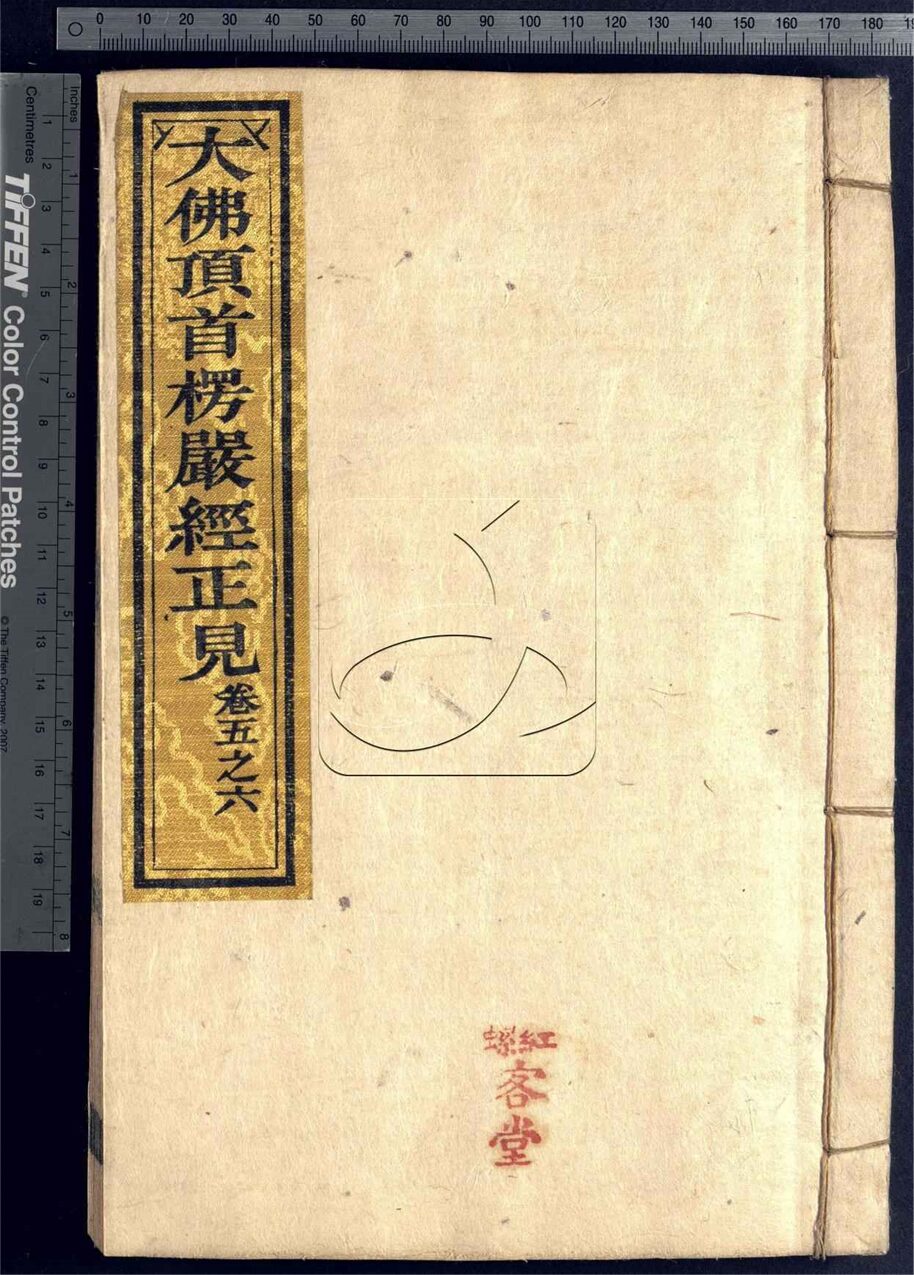 0 10 20 30 40 50 60 70 80 90 100 110 120 130 140 150 160 170 180
大佛頂首楞嚴經正見 卷五之六
紅螺
客堂
Inches
1 2 3 4 5 6 7 8
Centimetres
1 2 3 4 5 6 7 8 9 10 11 12 13 14 15 16 17 18 19
TIFFEN® Color Control Patches
© The Tiffen Company, 2007